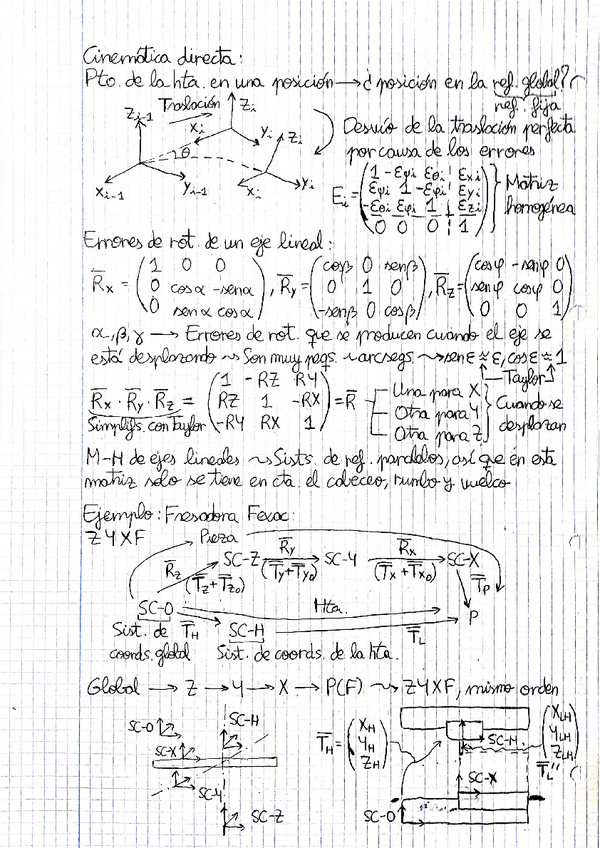 Cinemática directa:
Pto. de la hta. en una posición → ¿posición en la ref. global?
ref. fija
Z i-1 Traslación Z i
X i Y i Z i
θ
X i-1 Y i-1 X i Y i
Desvío de la traslación perfecta
por causa de los errores
E i = (1 -εψi εθi εxi
εψi 1 -εφi εyi
-εθi εφi 1 εzi
0 0 0 1)
Matriz
homogénea
Errores de rot. de un eje lineal:
R̄x = (1 0 0
0 cosα -senα
0 senα cosα)
, R̄y = (cosβ 0 senβ
0 1 0
-senβ 0 cosβ)
, R̄z = (cosφ -senφ 0
senφ cosφ 0
0 0 1)
α, β, γ → Errores de rot. que se producen cuando el eje se
está desplazando ⇝ Son muy peqs. ~ arcsegs ⇝ senε ≈ ε, cosε ≈ 1
Taylor
R̄x · R̄y · R̄z = (1 -RZ RY
RZ 1 -RX
-RY RX 1) = R̄
Simplifs. con Taylor
Una para X
Otra para Y
Otra para Z
Cuando se
desplazan
M-H de ejes lineales ⇝ Sists. de ref. paralelos, así que en esta
matriz solo se tiene en cta. el cabeceo, rumbo y vuelco
Ejemplo: Fresadora Fexac:
ZYXF Pieza
SC-Z R̄y (T̄y+T̄yo) SC-Y R̄x (T̄x+T̄xo) SC-X
R̄z (T̄z+T̄zo) T̄p
SC-O Hta. P
Sist. de T̄H SC-H T̄L
coords. global Sist. de coords. de la hta.
Global → Z → Y → X → P(F) ⇝ ZYXF, mismo orden
SC-O SC-H
SC-X
SC-Y
SC-Z
T̄H = (XH
YH
ZH)
SC-H
(XLH
YLH
ZLH)
T̄L"
SC-X
SC-O